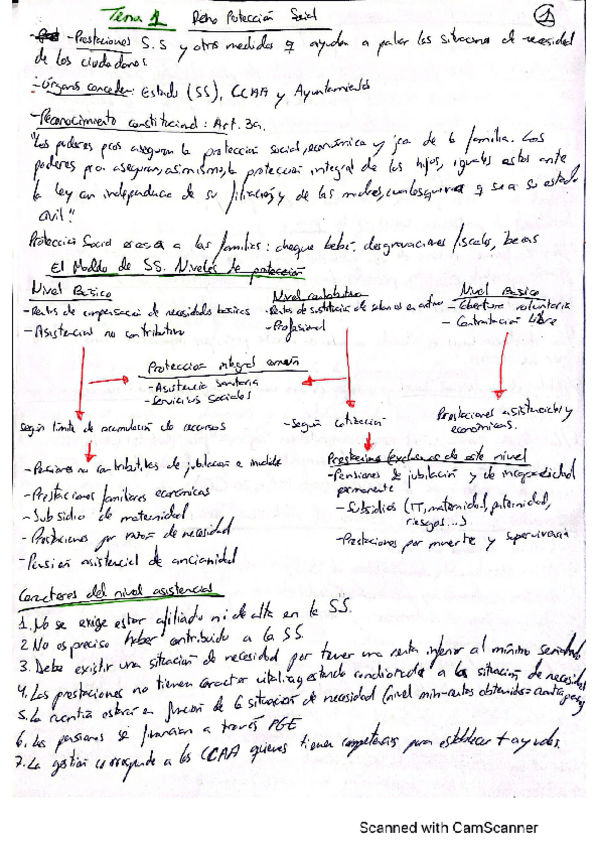 Tema 1 Dcho Protección Social 1
- Prestaciones S.S y otras medidas q ayudan a paliar las situaciones de necesidad
de los ciudadanos
- Órganos conceden: Estado (SS), CCAA y Ayuntamientos
- Reconocimiento constitucional: Art. 39.
"Los poderes pcos aseguran la protección social, económica y jca de la familia. Los
poderes pcos aseguran, asimismo, la protección integral de los hijos, iguales estos ante
la ley con independencia de su filiación, y de las madres, cualquiera q sea su estado
civil."
Protección Social a las familias: cheque bebé, desgravaciones fiscales, becas
El Modelo de SS. Niveles de protección
Nivel Básico
- Rentas de compensación de necesidades básicas
- Asistencial no contributivo
Nivel contributivo
- Rentas de sustitución de salarios en activo
- Profesional
Nivel Básico
- Cobertura voluntaria
- Contratación libre
Protección integral común
- Asistencia sanitaria
- Servicios sociales
Según límite de acumulación de recursos
- Según cotización
Prestaciones asistenciales y
económicas.
- Pensiones no contributivas de jubilación e invalidez
- Prestaciones familiares económicas
- Subsidio de maternidad
- Prestaciones por razón de necesidad
- Pensión asistencial de ancianidad
Prestaciones exclusivas de este nivel
- Pensiones de jubilación y de incapacidad
permanente
- Subsidios (IT, maternidad, paternidad,
riesgos...)
- Prestaciones por muerte y supervivencia
Caracteres del nivel asistencial
1. No se exige estar afiliado ni de alta en la SS.
2. No es preciso haber contribuido a la SS.
3. Debe existir una situación de necesidad por tener una renta inferior al mínimo
4. Las prestaciones no tienen carácter vitalicio, estando condicionadas a la situación de necesidad
5. La cuantía estará en función de la situación de necesidad (nivel min-rentas obtenidas=
6. Las pensiones se financian a través PGE
7. La gestión corresponde a las CCAA quienes tienen competencias para establecer + ayudas.
Scanned with CamScanner